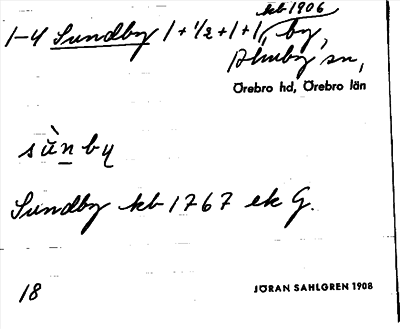 kb 1906
1-4 Sundby 1+1/2+1+1, by,
Almby sn,
Örebro hd, Örebro län
sùnby
Sundby kb 1767 ek G.
18 JÖRAN SAHLGREN 1908